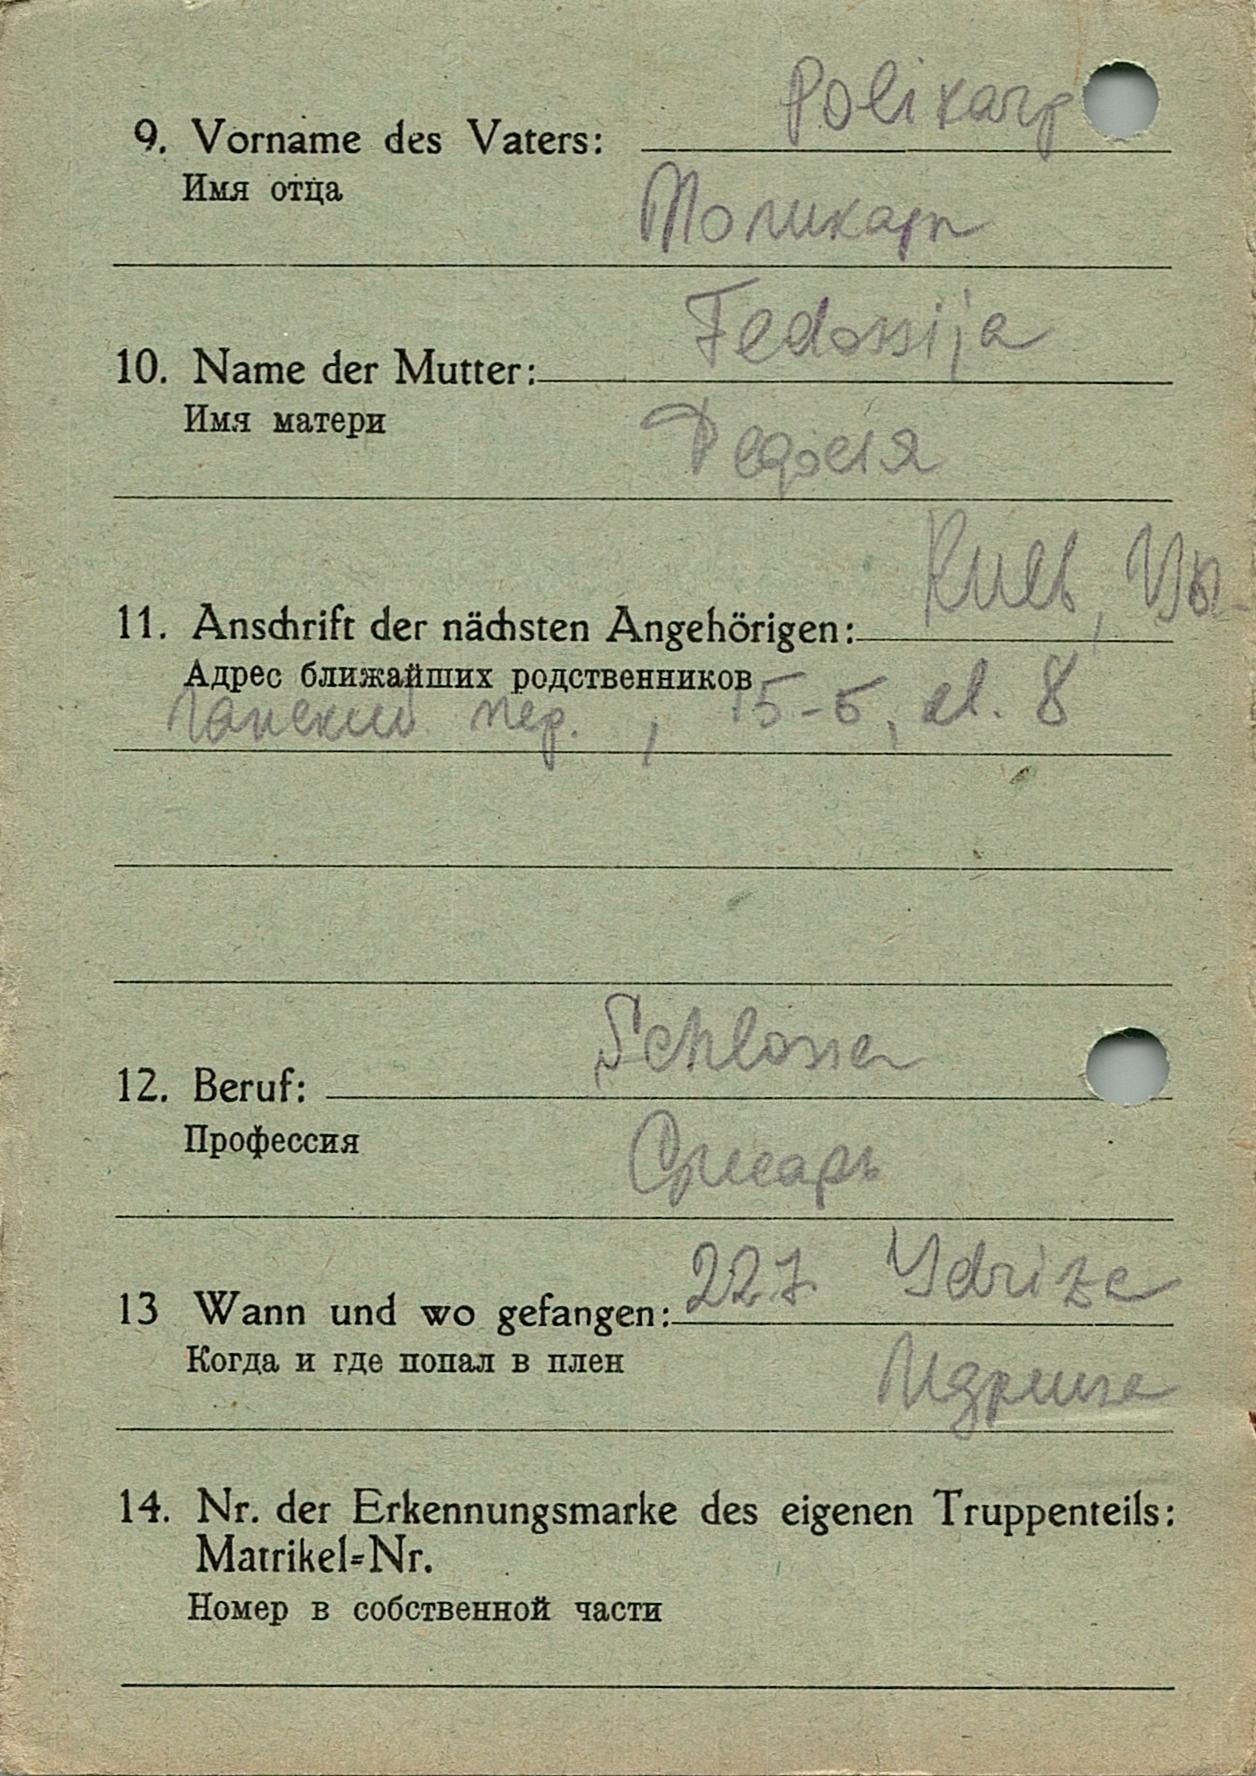 Polikarp
9. Vorname des Vaters:
Имя отца
Поликарп
Fedossija
10. Name der Mutter:
Имя матери
Федосія
Киев, Цы-
11. Anschrift der nächsten Angehörigen:
Адрес ближайших родственников
ганский пер., 15-5, кв. 8
Schlosser
12. Beruf:
Профессия
Слесарь
22.7. Idriza
13 Wann und wo gefangen:
Когда и где попал в плен
Идрица
14. Nr. der Erkennungsmarke des eigenen Truppenteils:
Matrikel-Nr.
Номер в собственной части